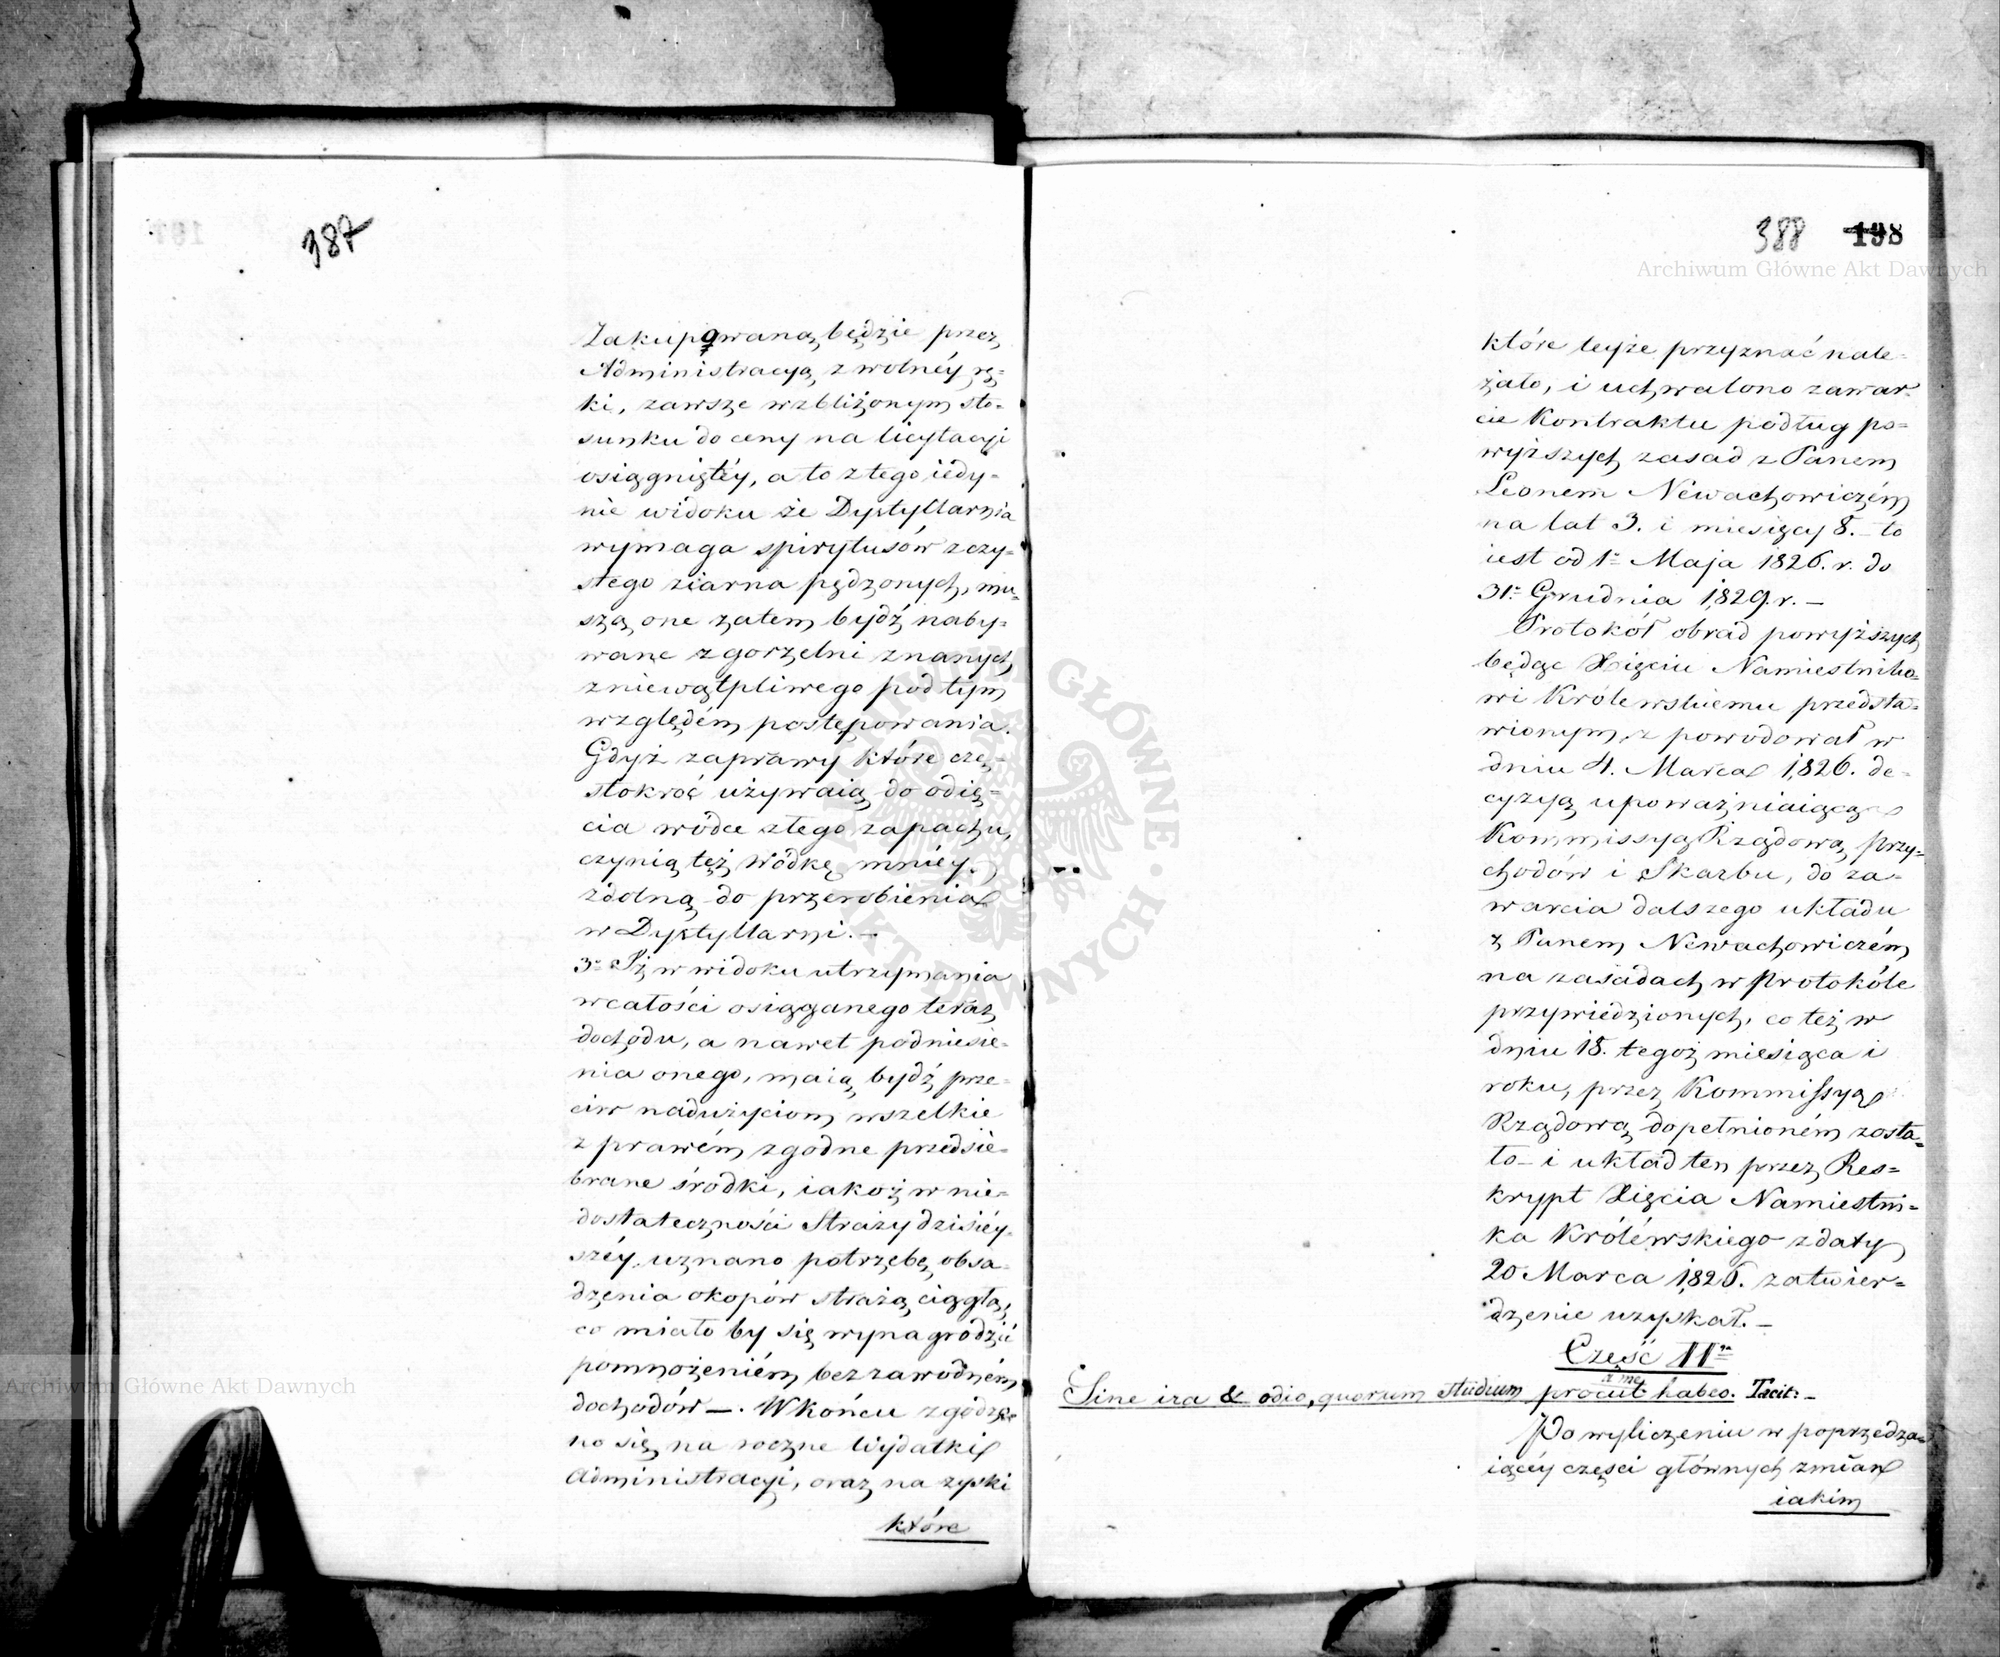 387
Zakupowaną będzie przez
Administracyą z wolnéy rę=
ki, zawsze w zbliżonym sto=
sunku do ceny na licytacyi
osiągniętéy, a to z tego iédy=
nie widoku że Dystyllarnia
wymaga spirytusów z czy=
stego ziarna pędzonych, mu=
szą one zatem bydź naby=
wane z gorzelni znanych
z niewątpliwego pod tym
względém postępowania.
Gdyż zaprawy które czę=
stokroć używaią do odię=
cia wódce złego zapachu,
czynią też wódkę mniéy
zdolną do przerobienia
w Dystyllarni.—
3º Iż w widoku utrzymania
w całości osiąganego teraz
dochodu, a nawet podniesie=
nia onego, maią bydź prze=
ciw nadużyciom wszelkie
z prawém zgodne przedsię=
brane środki, iakoż w nie=
dostateczności Straży dzisiéy=
széy uznano potrzebę obsa=
dzenia okopów strażą ciągłą,
co miało by się wynagrodzić
pomnożeniém bezzawodném
dochodów—. W końcu zgodzo=
no się na roczne wydatki
Administracyi, oraz na zyski
które
388 198
które teyże przyznać nale=
żało, i uchwalono zawar=
cie Kontraktu podług po=
wyższych zasad z Panem
Leonem Néwachowiczém
na lat 3. i miesięcy 8.— to
iest od 1º Maja 1826. r. do
31º Grudnia 1829. r.—
Protokół obrad powyższych
będąc Xięciu Namiestniko=
wi Królewskiemu przedsta=
wionym, spowodował w
dniu 4. Marca 1826. de=
cyzyą upoważniaiącą
Kommissyą Rządową przy=
chodów i Skarbu, do za=
warcia dalszego układu
z Panem Newachowiczém
na zasadach w Protokóle
przywiédzionych, co też w
dniu 18. tegoż miesiąca i
roku, przez Kommissyą
Rządową dopełnioném zosta=
ło— i układ ten przez Res=
krypt Xięcia Namiestni=
ka Królewskiego z daty
20 Marca 1826. zatwier=
dzenie uzyskał.—
Część IIga
Sine ira & odio, quorum studium a me procul habeo. Tacit:—
Po wyliczeniu w poprzedza=
iącéy części głównych zmian
iakim
Archiwum Główne Akt Dawnych
Archiwum Główne Akt Dawnych